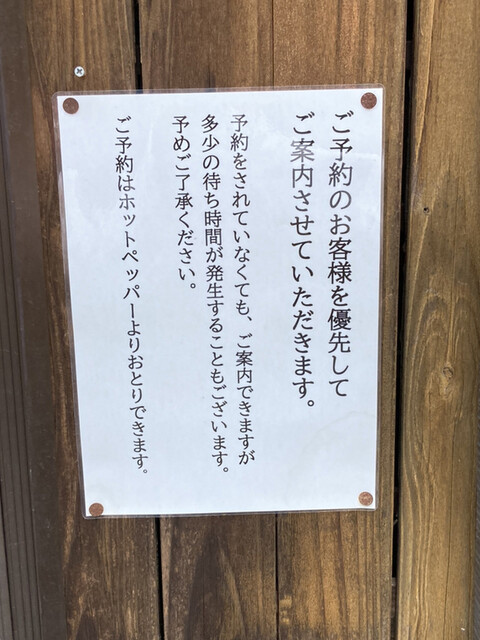 ご予約のお客様を優先して
ご案内させていただきます。
予約をされていなくても、ご案内できますが
多少の待ち時間が発生することもございます。
予めご了承ください。
ご予約はホットペッパーよりおとりできます。